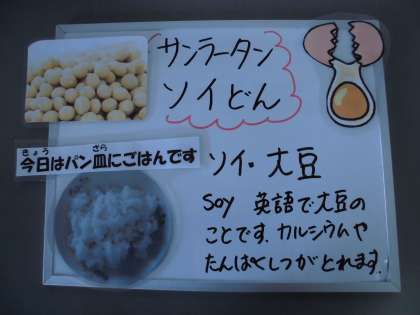 サンラータン
ソイどん
きょう ざら
今日はパン皿にごはんです
ソイ・大豆
Soy 英語で大豆の
ことです。カルシウムや
たんぱくしつがとれます。